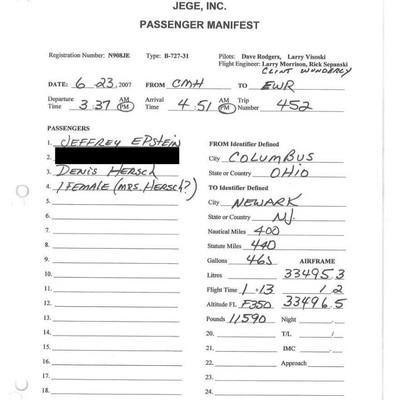 JEGE, INC.
PASSENGER MANIFEST
Registration Number: N908JE Type: B-727-31 Pilots: Dave Rodgers, Larry Visoski
Flight Engineer: Larry Morrison, Rick Sepanski
CLINT
DATE: 6-23, 2007 FROM CMH TO EWR
Departure Time 3:37 AM PM Arrival Time 4:51 AM PM Trip Number 452
PASSENGERS
1. JEFFREY EPSTEIN
3. DENIS HERSCH
4. 1 FEMALE (MRS. HERSCH?)
5.
6.
7.
8.
9.
10.
11.
12.
13.
14.
15.
16.
17.
18.
FROM Identifier Defined
City COLUMBUS
State or Country OHIO
TO Identifier Defined
City NEWARK
State or Country NJ.
Nautical Miles 400
Statute Miles 440
Gallons 465 AIRFRAME
Litres 33495.3
Flight Time 1+13 1.2
Altitude FL F350 33496.5
Pounds 11590 Night
20. T/L /
21. IMC
22. Approach
23.
24.